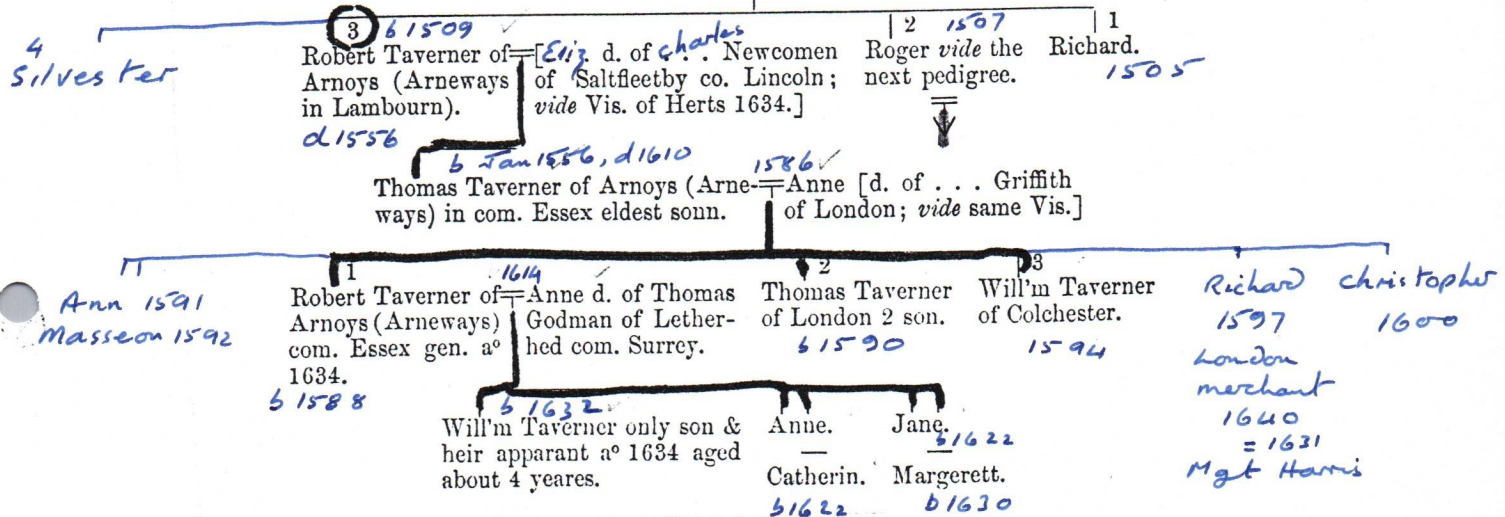 4
Silvester
3 b 1509
Robert Taverner of
Arnoys (Arneways
in Lambourn).
d 1556
[Eliz. d. of Charles . . Newcomen
of Saltfleetby co. Lincoln;
vide Vis. of Herts 1634.]
2 1507
Roger vide the
next pedigree.
1
Richard.
1505
b Jan 1556, d 1610
Thomas Taverner of Arnoys (Arne-
ways) in com. Essex eldest sonn.
1586
Anne [d. of . . . Griffith
of London; vide same Vis.]
Ann 1591
Masseon 1592
1
Robert Taverner of
Arnoys (Arneways)
com. Essex gen. aº
1634.
b 1588
1614
Anne d. of Thomas
Godman of Lether-
hed com. Surrey.
2
Thomas Taverner
of London 2 son.
b 1590
3
Will'm Taverner
of Colchester.
1594
Richard
1597
London
merchant
1640
= 1631
Mgt Harris
Christopher
1600
b 1632
Will'm Taverner only son &
heir apparant aº 1634 aged
about 4 yeares.
Anne.
—
Catherin.
b 1622
Jane.
b 1622
—
Margerett.
b 1630